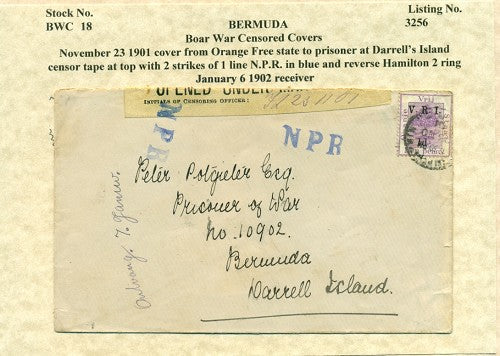 Stock No.
BWC 18
BERMUDA
Listing No.
3256
Boar War Censored Covers
November 23 1901 cover from Orange Free state to prisoner at Darrell's Island
censor tape at top with 2 strikes of 1 line N.P.R. in blue and reverse Hamilton 2 ring
January 6 1902 receiver
OPENED UNDER MAR
INITIALS OF CENSORING OFFICER:
NPR
NPR
V. R. I.
Peter Potgieter Esq.
Prisoner of War
No. 10902.
Bermuda
Darrell Island.